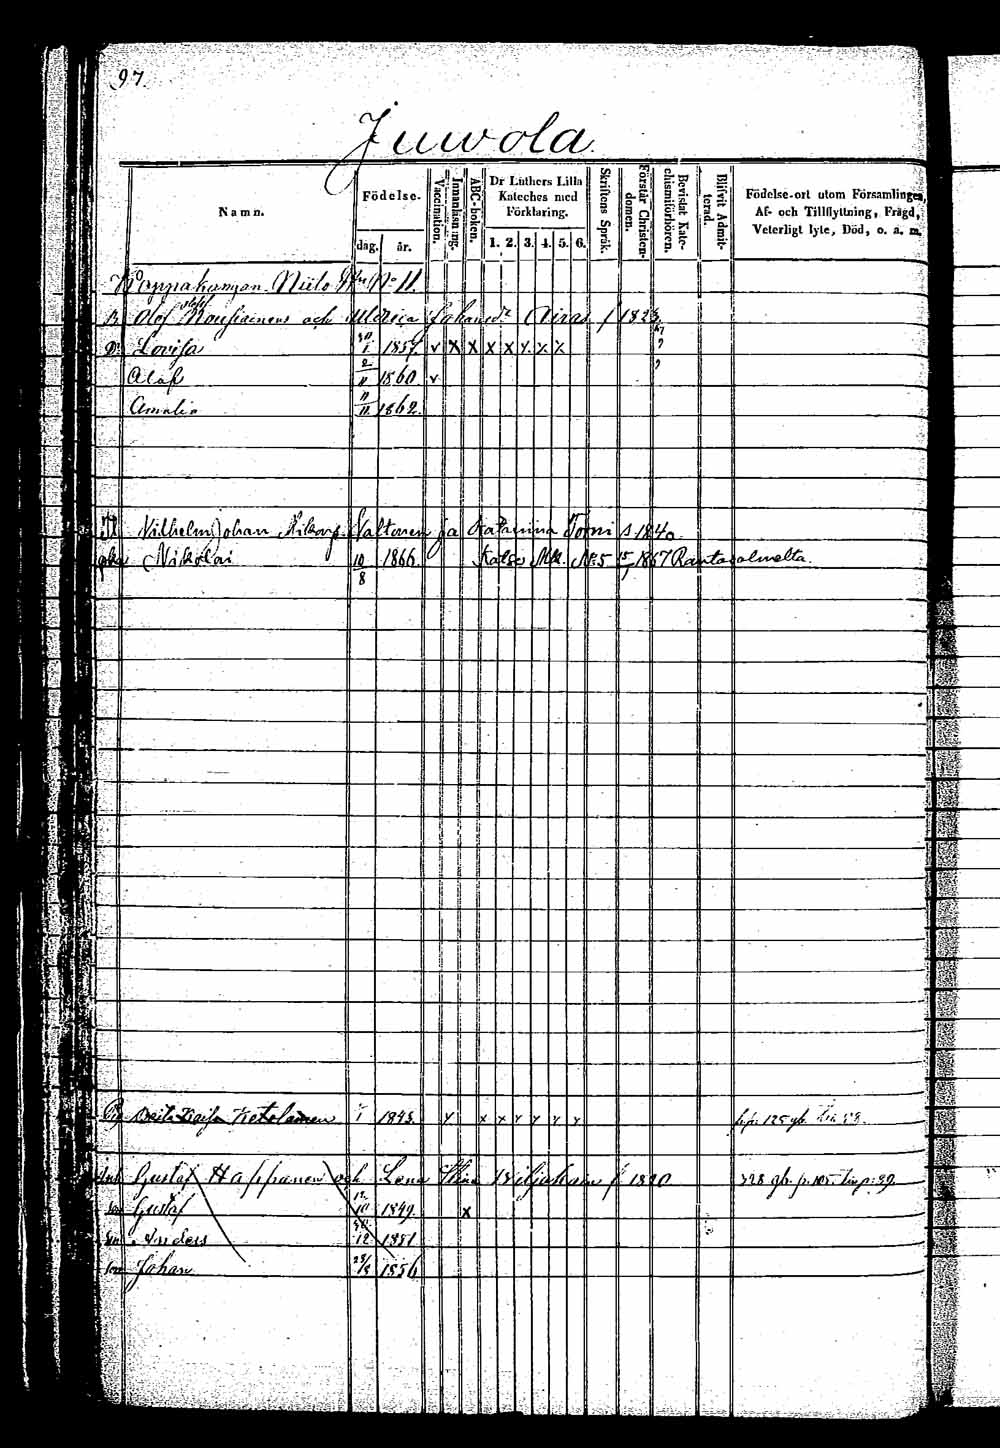 97.
Juwola
Namn.
Födelse.
dag.
år.
Vaccination.
Innanläsning.
ABC-boken.
Dr Luthers Lilla Kateches med Förklaring.
1. 2. 3. 4. 5. 6.
Skriftens Språk.
Förstår Christendomen.
Bevistat Katechismiförhören.
Blifvit Admitterad.
Födelse-ort utom Församlingen, Af- och Tillflyttning, Frägd, Veterligt lyte, Död, o. a. m.
Niilo No 11.
B. Olof och Ulrica Airas f 1823
Dr Lovisa 1857. v x x x x x x x
Olof 2/11 1860 v
Amalia 11/11 1862.
Vilhelm Johan Valtonen ja Katariina Tornii s 1840.
poika Nikolai 10/8 1866 Katso No 5 15/1 1867 Rantasalmelta
Kaisa Ketolainen 1843. x x x x x x x 125
Gustaf Happanen och Lena Stina Wiljakain f 1820 328
son Gustaf 12/10 1849 x
son Anders 1851
son Johan 1856